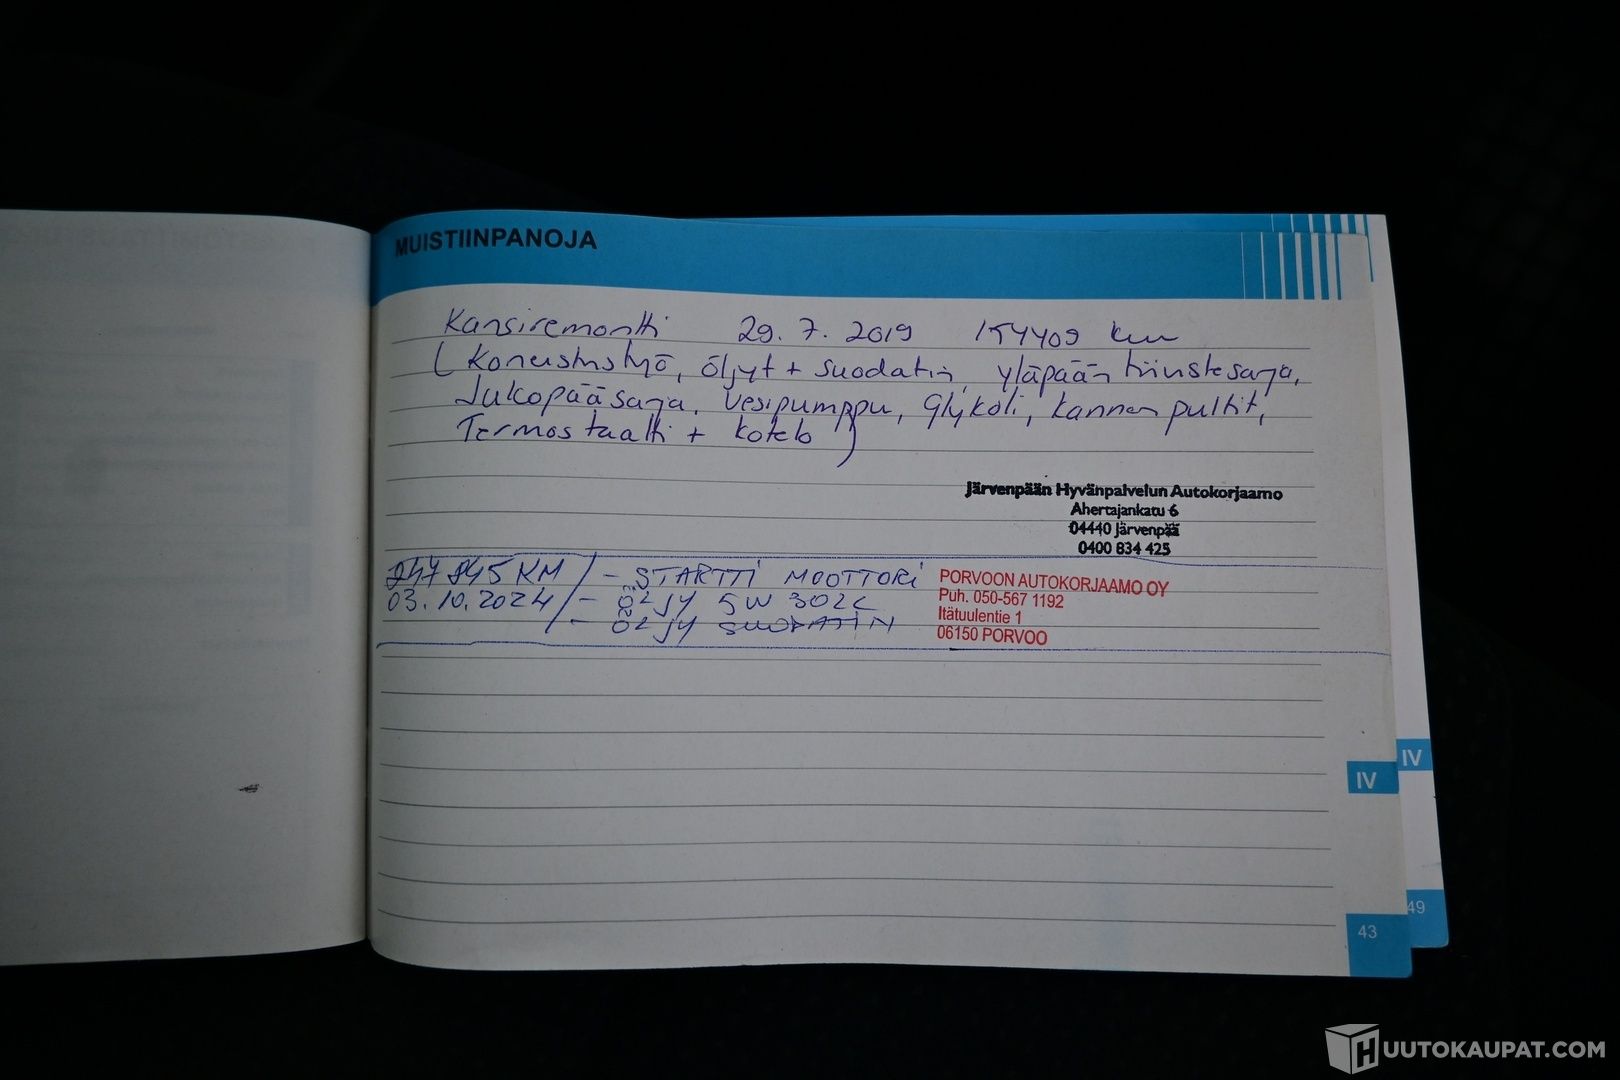 MUISTIINPANOJA
Kansiremontti 29.7.2019 154409 km
(Koneistustyö, öljyt + suodatin, yläpään tiivistesarja,
Jakopääsarja, Vesipumppu, Glykoli, kannen pultit,
Termostaatti + kotelo)
Järvenpään Hyvänpalvelun Autokorjaamo
Ahertajankatu 6
04440 Järvenpää
0400 834 425
247 245 KM / - STARTTI MOOTTORI
03.10.2024 / - ÖLJY 5W30
- ÖLJY SUODATIN
PORVOON AUTOKORJAAMO OY
Puh. 050-567 1192
Itätuulentie 1
06150 PORVOO
IV
IV
49
43
HUUTOKAUPAT.COM